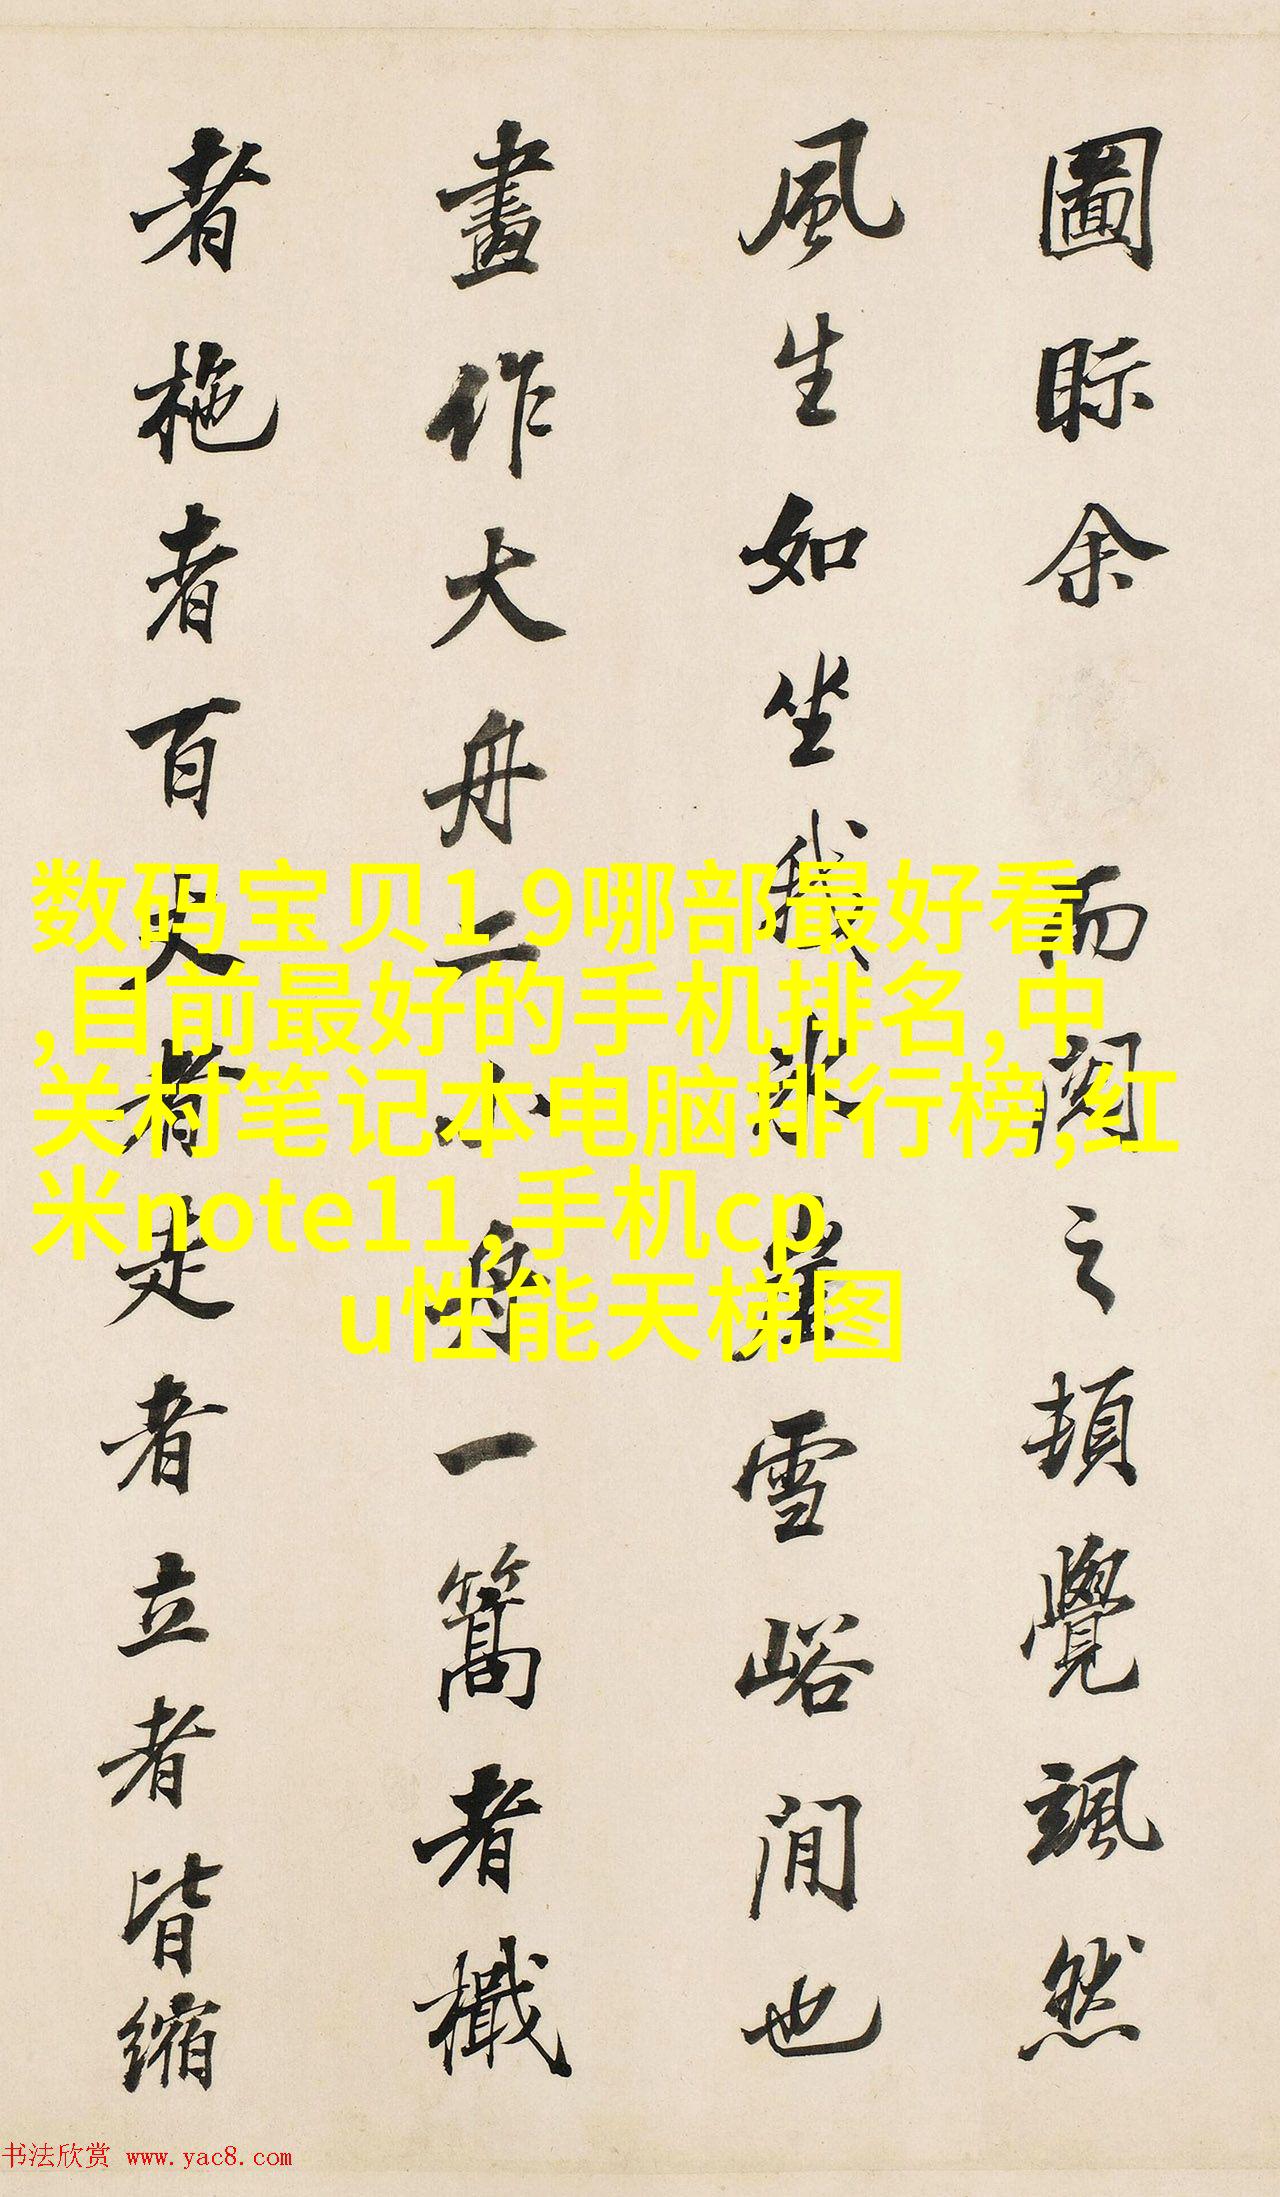 圖眎余 而閱之頓覺颯然
風生如坐我氷崖雪峪閒也
畫作大舟二小舟一篙者檝
者柂者百丈者走者立者皆縮
数码宝贝1 9哪部最好看
,目前最好的手机排名,中
关村笔记本电脑排行榜,红
米note11,手机cp
u性能天梯图
书法欣赏 www.yac8.com